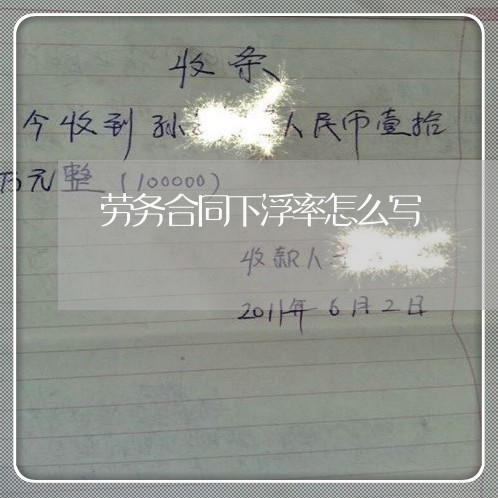 收条
今收到孙 人民币壹拾
万元整（100000）
劳务合同下浮率怎么写
收款人
2011年6月2日